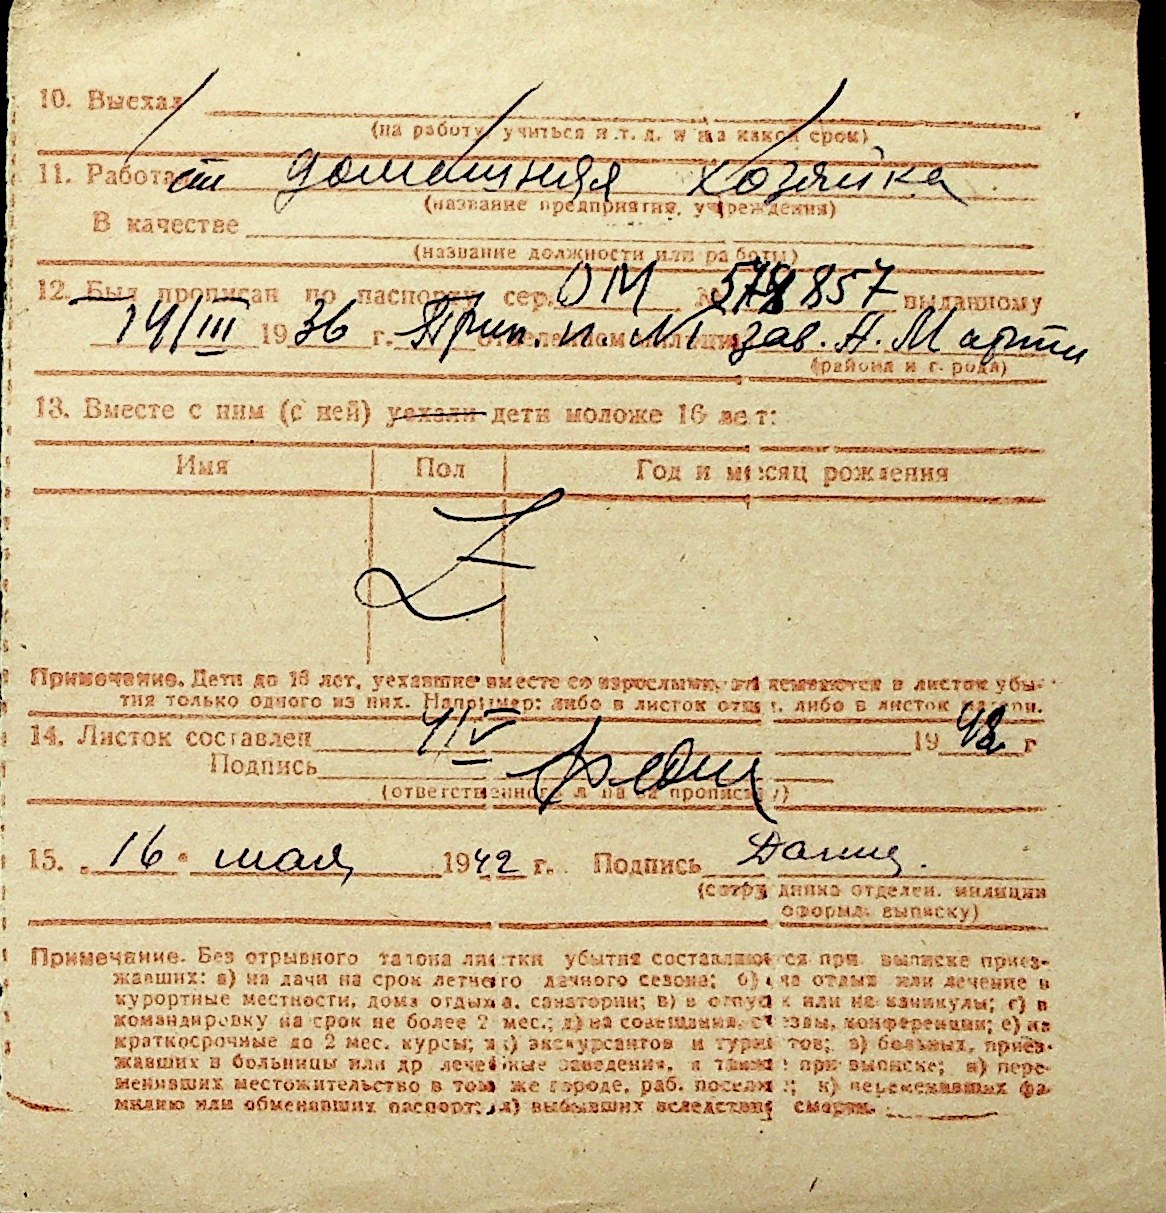 10. Выехал
(на работу, учиться и.т. д. и на какой срок)
11. Работает домашняя хозяйка
(название предприятия, учреждения)
В качестве
(название должности или работы)
12. Был прописан по паспорту сер. ОМ № 857 выданному
14/III 1936 г. отделением милиции зав. А. Марти
(района и города)
13. Вместе с ним (с ней) уехали дети моложе 16 лет:
Имя Пол Год и месяц рождения
Z
Примечание. Дети до 16 лет, уехавшие вместе со взрослыми, в листок убы-
тия только одного из них. Например: либо в листок отца, либо в листок матери.
14. Листок составлен 4/V 1942 г
Подпись
(ответственного лица за прописку)
15. „16“ мая 1942 г. Подпись
(сотрудника отделен. милиции
оформл. выписку)
Примечание. Без отрывного талона листки убытия составляются при выписке приез-
жавших: а) на дачи на срок летнего дачного сезона; б) на отдых или лечение в
курортные местности, дома отдыха, санатории; в) в отпуск или на каникулы; г) в
командировку на срок не более 2 мес.; д) на совещания, съезды, конференции; е) на
краткосрочные до 2 мес. курсы; ж) экскурсантов и туристов; з) больных, приез-
жавших в больницы или др лечебные заведения, а также при выписке; и) пере-
менивших местожительство в том же городе, раб. поселке; к) переменивших фа-
милию или обменявших паспорт; л) выбывших вследствие смерти.